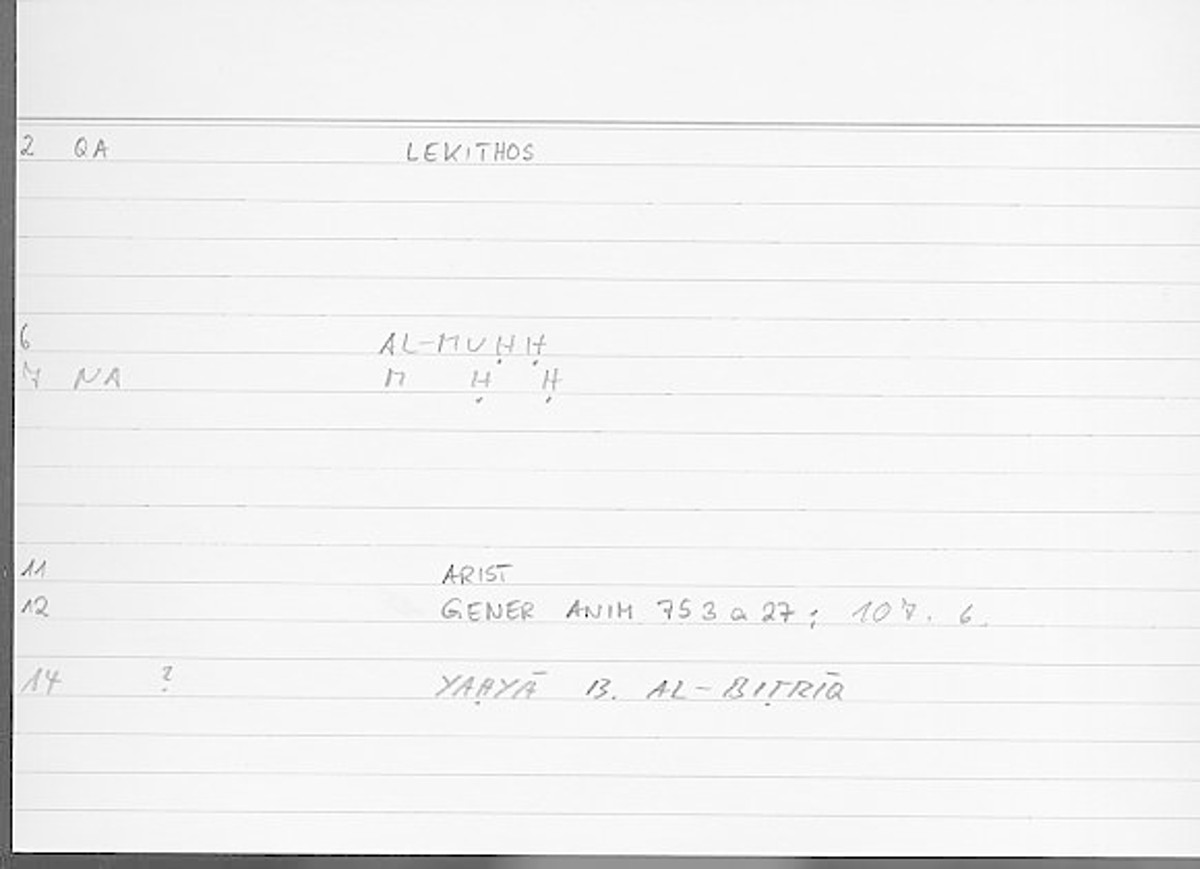 2 QA LEKITHOS
6 AL-MUḤḤ
7 NA M Ḥ Ḥ
11 ARIST
12 GENER ANIM 753 a 27; 107. 6.
14 ? YAḤYĀ B. AL-BIṬRĪQ